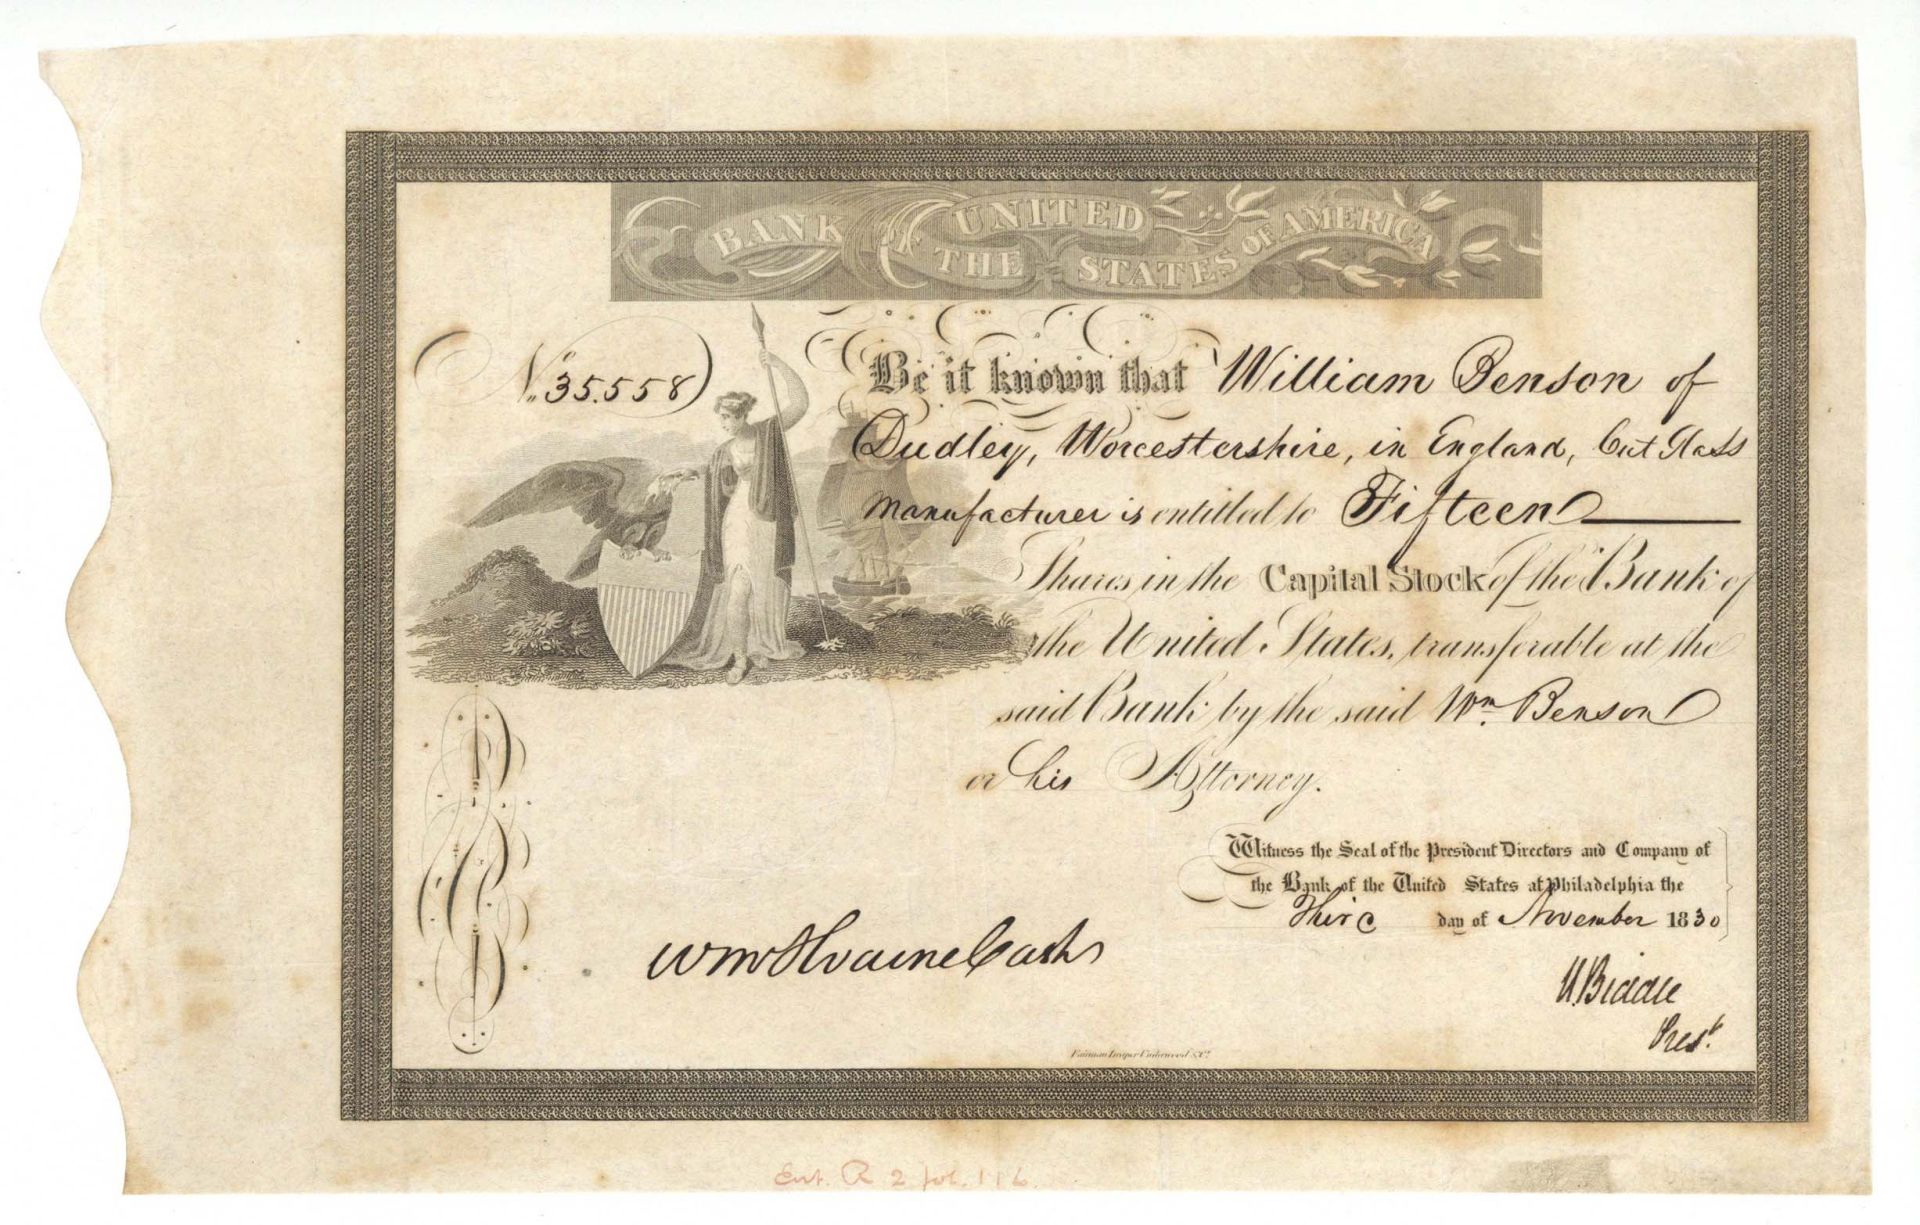 BANK OF THE UNITED STATES OF AMERICA
No. 35.558
Be it known that William Benson of
Dudley, Worcestershire, in England, Cut Glass
Manufacturer is entitled to Fifteen
Shares in the Capital Stock of the Bank of
the United States, transferable at the
said Bank by the said Wm. Benson
or his Attorney.
Witness the Seal of the President Directors and Company of
the Bank of the United States at Philadelphia the
Third day of November 1830
Wm McIlvaine Cashr
N. Biddle
Prest.
Fairman Draper Underwood & Co.
Ent. R 2 fol. 116.